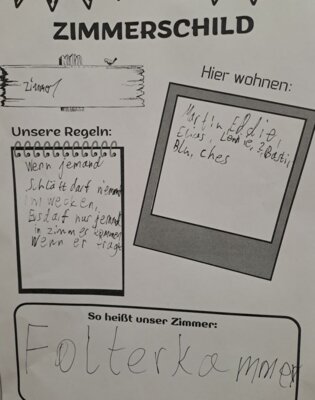 ZIMMERSCHILD
Hier wohnen:
Martin, Eddie,
Unsere Regeln:
Wenn jemand
schläft darf niemand
ihn wecken,
Es darf nur jemand
in zimmer kommen
Wenn er fragt
So heißt unser Zimmer:
Folterkammer